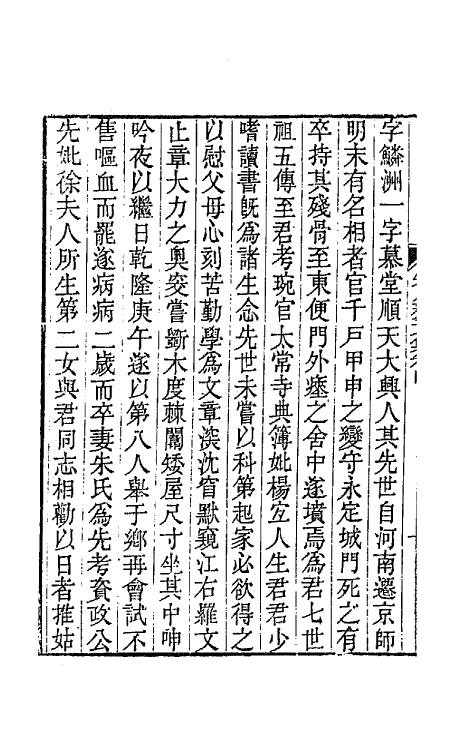 字鱗洲一字慕堂順天大興人其先世自河南遷京師
明末有名相者官千戸甲申之變守永定城門死之有
卒持其殘骨至東便門外瘞之舍中遂墳焉爲君七世
祖五傳至君考琬官太常寺典簿妣楊宜人生君君少
嗜讀書旣爲諸生念先世未嘗以科第起家必欲得之
以慰父母心刻苦勤學爲文章深沈窅默窺江右羅文
止章大力之奥窔嘗斵木度棘闈矮屋尺寸坐其中呻
吟夜以繼日乾隆庚午遂以第八人舉于鄉再會試不
售嘔血而罷遂病病二歲而卒妻朱氏爲先考資政公
先妣徐夫人所生第二女與君同志相勸以日者推姑